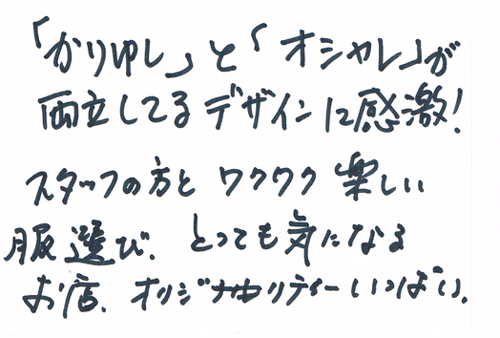 「かりゆし」と「オシャレ」が
両立してるデザインに感激!
スタッフの方と ワクワク 楽しい
服選び、とっても気になる
お店、オリジナリティーいっぱい。